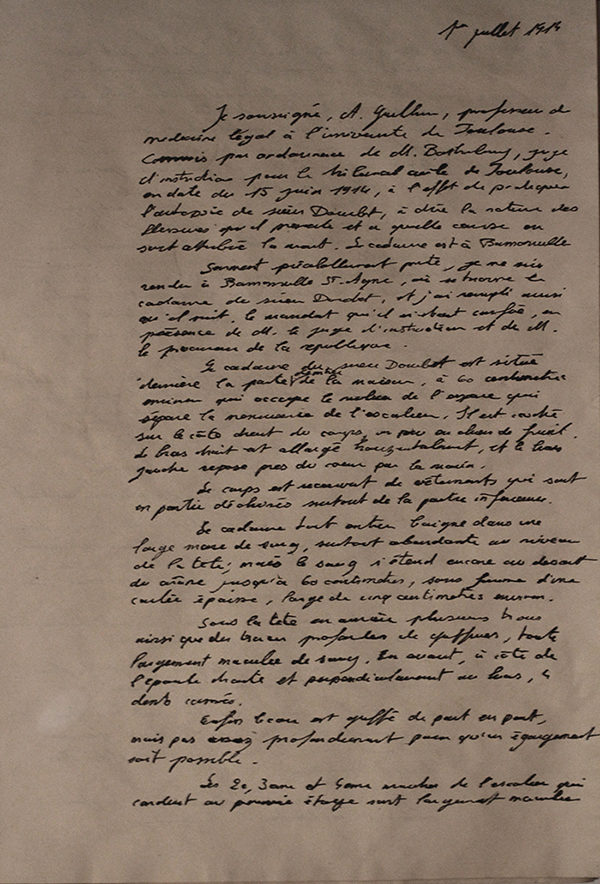 1er juillet 1914
Je soussigné, A. Guilhem, professeur de
médecine légal à l'université de Toulouse.
Commis par ordonnance de M. Barthelemy, juge
d'instruction pour le tribunal civile de Toulouse,
en date du 15 juin 1914, à l'effet de pratiquer
l'autopsie de sieur Doudot, à dire la nature des
blessures qu'il presente et a quelle cause on
doit attribué la mort. Le cadavre est à
Serment préalablement preté, je me suis
rendu à St Agne, où se trouve le
cadavre de sieur Doudot, et j'ai rempli ainsi
qu'il suit, le mandat qu'il m'était confié, en
présence de M. le juge d'instruction et de M.
le procureur de la republique.
Le cadavre du sieur Doudot est situé
derrière la porte de la maison, à 60 centimetres
environ qui occupe le milieu de l'espace qui
sépare la de l'escalier. Il est couché
sur le côté droit du corps, en chien de fusil.
Le bras droit est allongé horizontalement, et le bras
gauche repose pres du coeur par la main.
Le corps est recouvert de vêtements qui sont
en partie déchirés surtout de la partie inférieure.
Le cadavre tout entier baigne dans une
large mare de sang, surtout abondante au niveau
de la tete; mais le sang s'étend encore au dessous
du crâne jusqu'à 60 centimetres, sous forme d'une
coulée épaisse, large de cinq centimetres environ.
Sous la tete en arrière plusieurs trous
ainsi que des traces profondes de griffures, toute
largement maculée de sang. En avant, à côté de
l'epaule droite et perpendiculairement au bras, 4
dents carnées.
Enfin le cou est griffé de part en part,
mais pas assez profondement pour qu'un égorgement
soit possible.
Les 2e, 3eme et 4eme marches de l'escalier qui
conduit au premier étage sont largement maculées